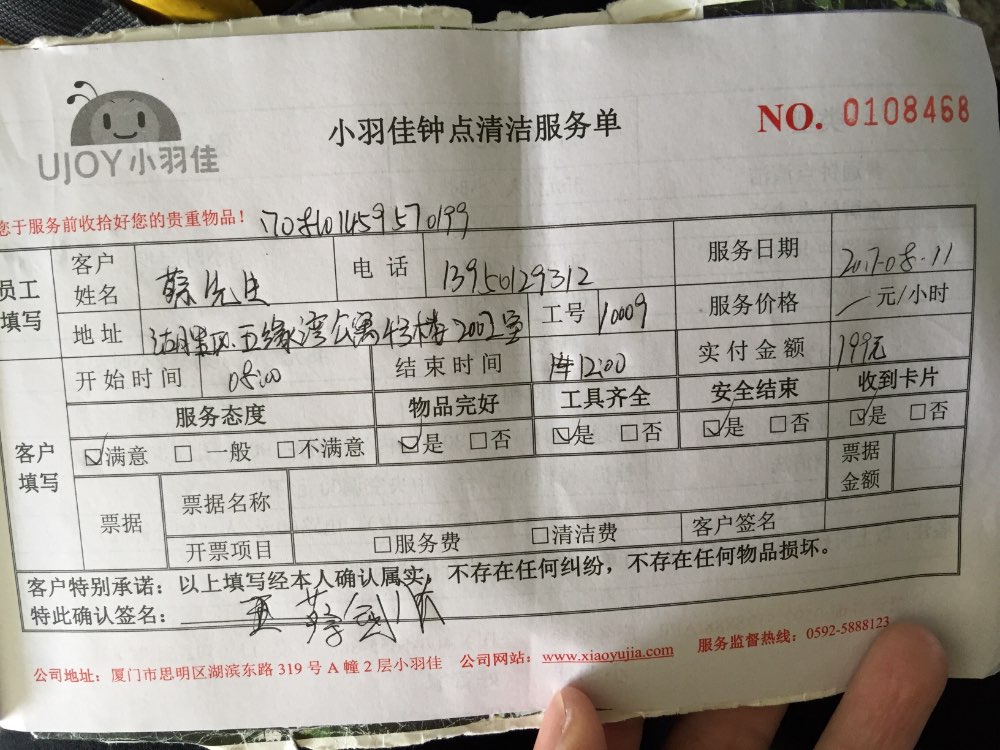 UJOY小羽佳
小羽佳钟点清洁服务单
NO. 0108468
您于服务前收拾好您的贵重物品！
员工填写
客户姓名 蔡先生 电话 13950129312 服务日期 2017-08-11
地址 湖里区五缘湾公寓 2002室 工号 10009 服务价格 元/小时
开始时间 08:00 结束时间 12:00 实付金额 199元
客户填写
服务态度 物品完好 工具齐全 安全结束 收到卡片
☑满意 □一般 □不满意 ☑是 □否 ☑是 □否 ☑是 □否 ☑是 □否
票据 票据名称 票据金额
开票项目 □服务费 □清洁费 客户签名
客户特别承诺：以上填写经本人确认属实，不存在任何纠纷，不存在任何物品损坏。
特此确认签名：
公司地址：厦门市思明区湖滨东路 319 号 A 幢 2 层小羽佳 公司网站：www.xiaoyujia.com 服务监督热线：0592-5888123